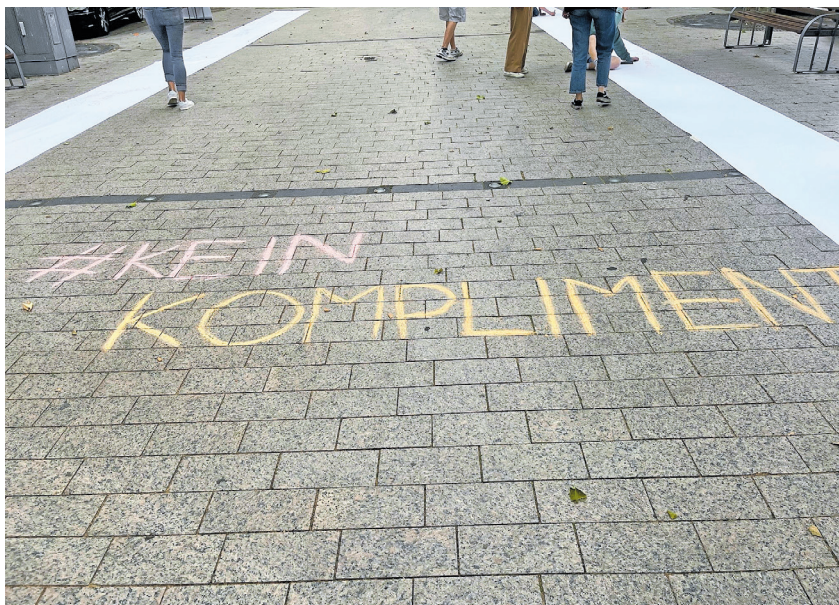 #KEIN
KOMPLIMENT